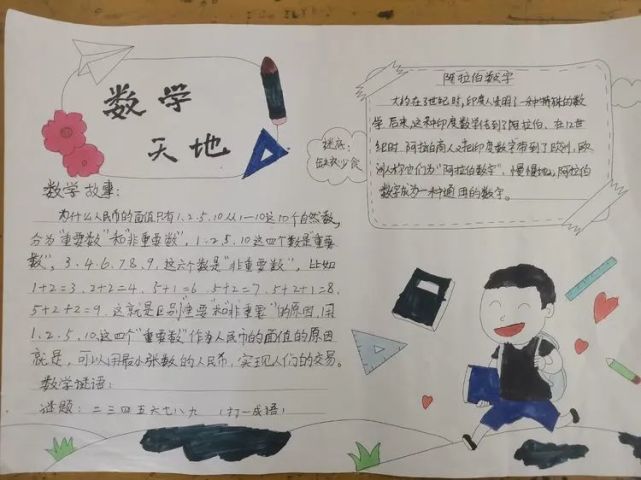 数学
天地
数学故事：
为什么人民币的面值只有1、2、5、10从1—10这10个自然数，
分为“重要数”和“非重要数”，1、2、5、10这四个数是“重要
数”，3、4、6、7、8、9，这六个数是“非重要数”，比如
1+2=3，2+2=4，5+1=6，5+2=7，5+2+1=8，
5+2+2=9，这就是区别“重要”和“非重要”的原因，用
1、2、5、10，这四个“重要数”作为人民币的面值的原因
就是，可以用最小张数的人民币，实现人们的交易。
数学谜语：
谜题：二三四五六七八九（打一成语）
谜底：
缺衣少食
阿拉伯数字
大约在3世纪时，印度人发明了一种特殊的数
学，后来，这种印度数字传到了阿拉伯，在12世
纪时，阿拉伯商人又把印度数字带到了欧洲，欧
洲人称它们为“阿拉伯数字”，慢慢地，阿拉伯
数字成为一种通用的数字。